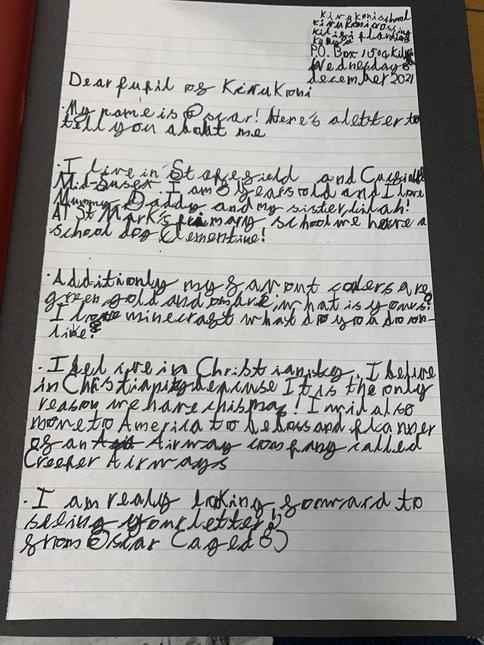 Kinukoni school
Kinukoni cross
Kilifi
P.O. Box 1509 Kilifi
Wednesday 8
december 2021
Dear pupil of Kinukoni
.My name is Oscar! Here's a letter to
tell you about me
.I live in Staplefield and Cuckfield
Mid-Susex. I am 8 years old and I love
Mummy Daddy and my sister lilah!
At St Mark's primary school we have a
school dog Clementine!
.Additionly my favorit colers are
green gold and what is yours?
I love minecraft what do you do on
like?
.I beleive in Christianity. I belive
in Christianity becuse It is the only
reason we have chismas! I will also
move to America to be
of an Airway company called
Creeper Airways
.I am really looking forward to
seeing your letter!
from Oscar (aged 8)